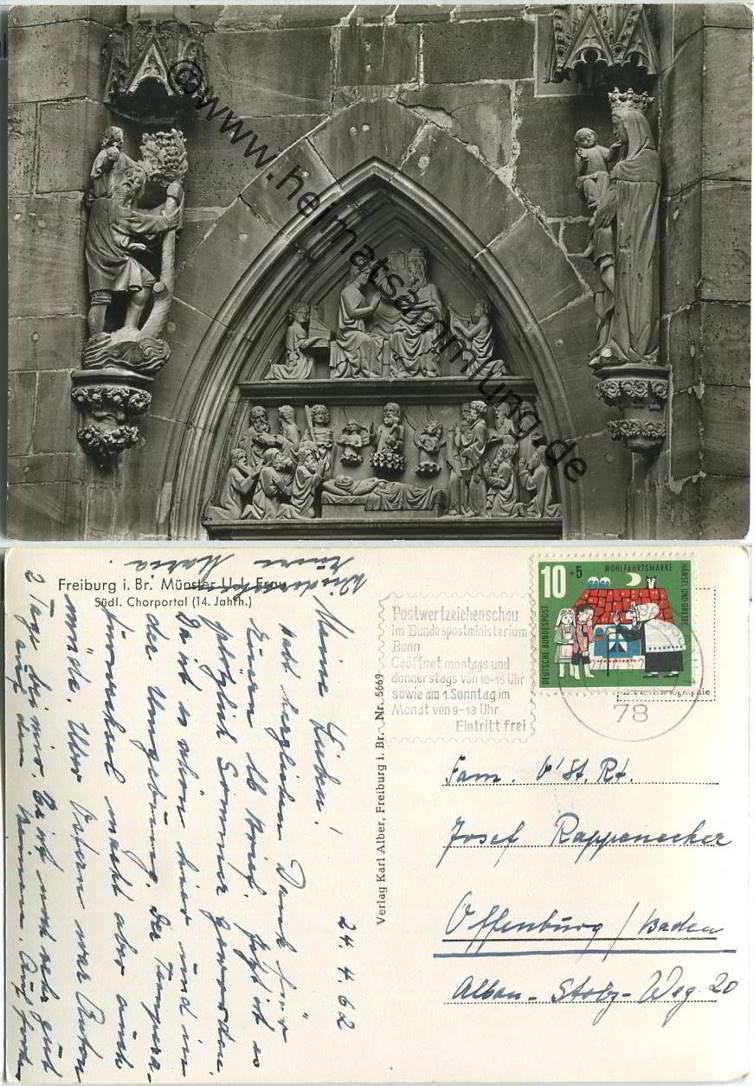 ©www.heimatsammlung.de
Freiburg i. Br. Münster U. L. Frau
Südl. Chorportal (14. Jahrh.)
Postwertzeichenschau
im Bundespostministerium
Bonn
Geöffnet montags und
donnerstags von 10-15 Uhr
sowie am 1. Sonntag im
Monat von 9-13 Uhr
Eintritt frei
10+5
WOHLFAHRTSMARKE
HÄNSEL UND GRETEL
DEUTSCHE BUNDESPOST
78
Verlag Karl Alber, Freiburg i. Br. Nr. 5669
24.4.62
Meine Lieben!
Habt herzlichen Dank für
Euren lb Brief. Jetzt ist es
plötzlich Sommer geworden.
Da ist es schön hier und in
der Umgebung. Die Tempera-
macht aber auch
müde. Über Ostern war Anton
2 Tage bei mir. Es ist noch sehr gut
auf den Beinen. Auf
Wiedersehen
Eure Maria.
Fam. O'St. Rt.
Josef Rappenecker
Offenburg / Baden
Alban-Stolz-Weg 20